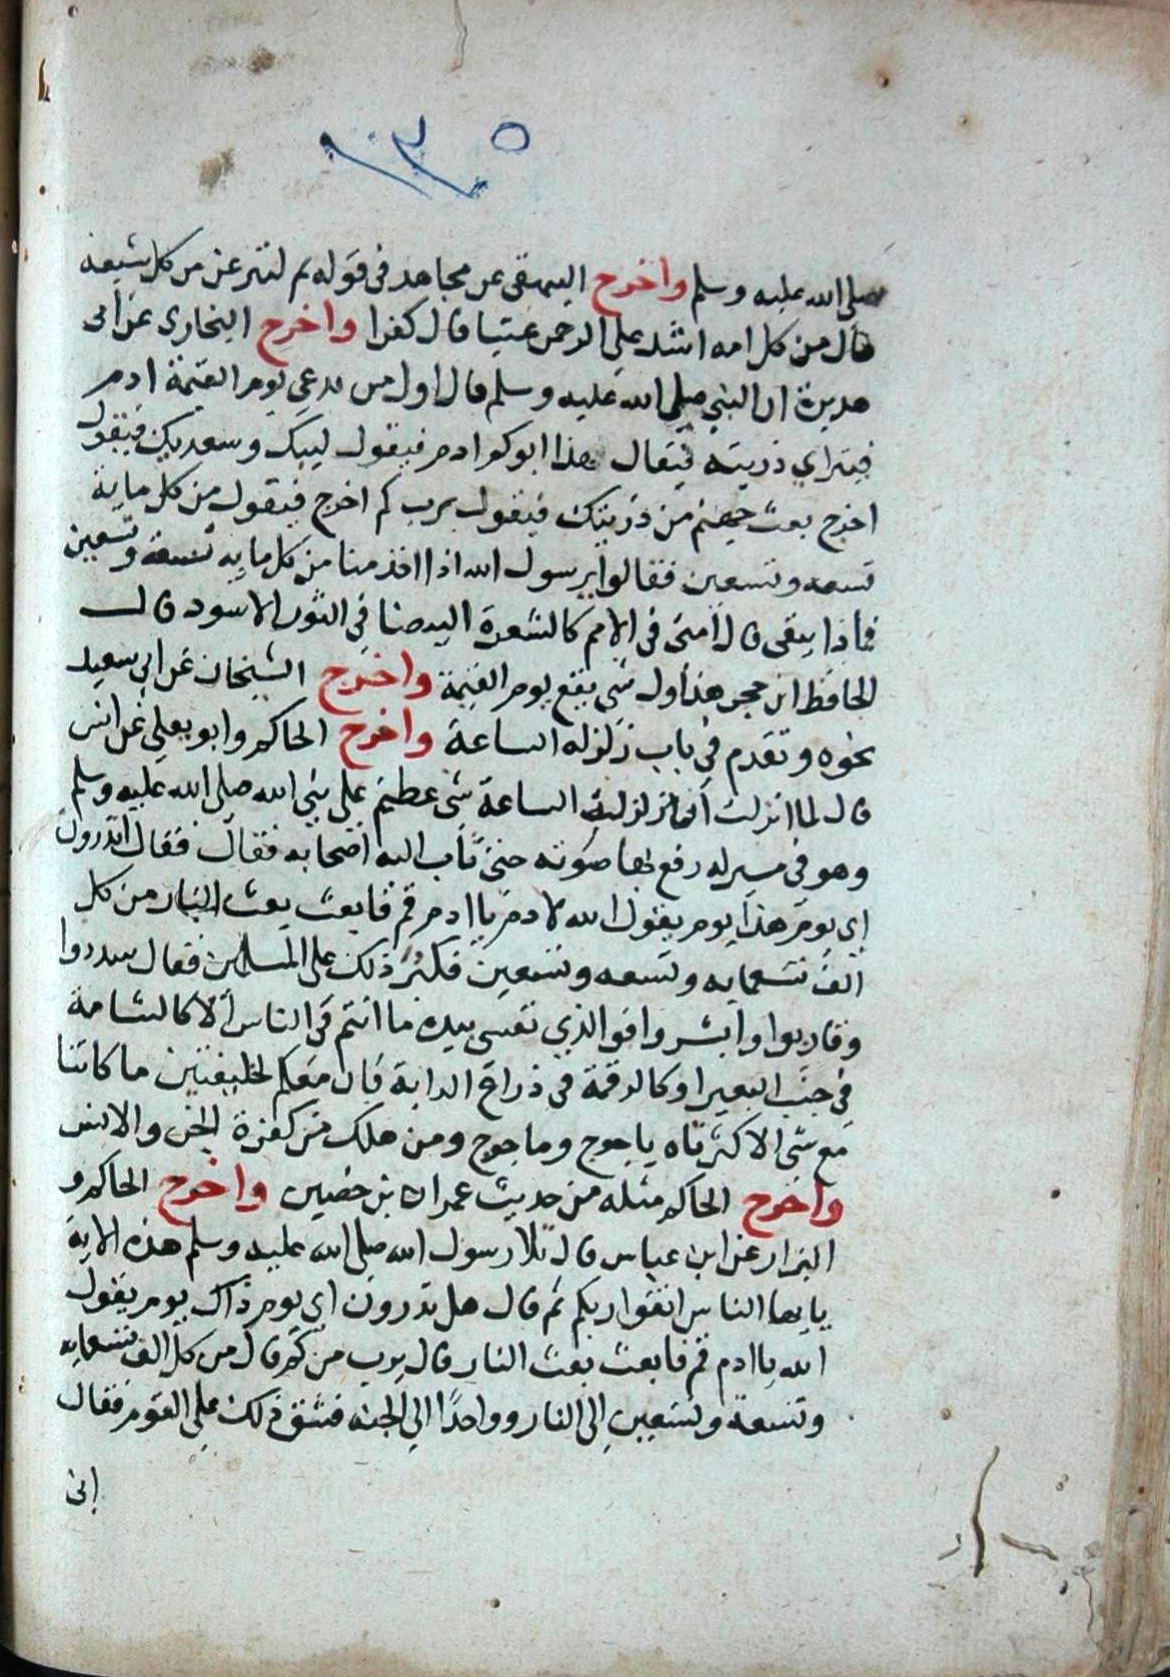 ١٠٣٥
صلى الله عليه وسلم واخرج البيهقى عن مجاهد فى قوله ثم لننزعن من كل شيعة
قال من كل امه اشد على الرحمن عتيا قال كفرا واخرج البخارى عن ابى
هريرة ان النبى صلى الله عليه وسلم قال اول من يدعى يوم القيمة ادم
فيتراى ذريته فيقال هذا ابوكم ادم فيقول لبيك وسعديك فيقول
اخرج بعث جهنم من ذريتك فيقول يرب كم اخرج فيقول من كل ماية
تسعه وتسعين فقالوا يرسول الله اذا اخذ منا من كل مايه تسعة وتسعين
فماذا يبقى قال امتى فى الامم كالشعرة البيضا فى الثور الاسود قال
الحافظ ابن حجر هذا اول شى يقع يوم القيمة واخرج الشيخان عن ابى سعيد
نحوه وتقدم فى باب زلزله الساعة واخرج الحاكم وابو يعلى عن انس
قال لما انزلت ان زلزلة الساعة شى عظيم على نبى الله صلى الله عليه وسلم
وهو فى مسير له رفع بها صوته حتى ثاب اليه اصحابه فقال فقال اتدرون
اى يوم هذا يوم يقول الله لادم ياادم قم فابعث بعث النار من كل
الف تسعمايه وتسعه وتسعين فكبر ذلك على المسلمين فقال سددوا
وقاربوا وابشروا فو الذي نفسى بيده ما انتم فى الناس الا كالشامة
فى جنب البعير او كالرقمة فى ذراع الدابة قال معكم لخليقتين ما كانتا
مع شى الا كثرتاه ياجوج وماجوج ومن هلك من كفرة الجن والانس
واخرج الحاكم مثله من حديث عمران بن حصين واخرج الحاكم و
البزار عن ابن عباس قال تلا رسول الله صلى الله عليه وسلم هذه الاية
يايها الناس اتقوا ربكم ثم قال هل تدرون اى يوم ذاك يوم يقول
الله ياادم قم فابعث بعث النار قال يرب من كم قال من كل الف تسعمايه
وتسعة وتسعين الى النار وواحدًا الى الجنه فشق ذلك على القوم فقال
انى